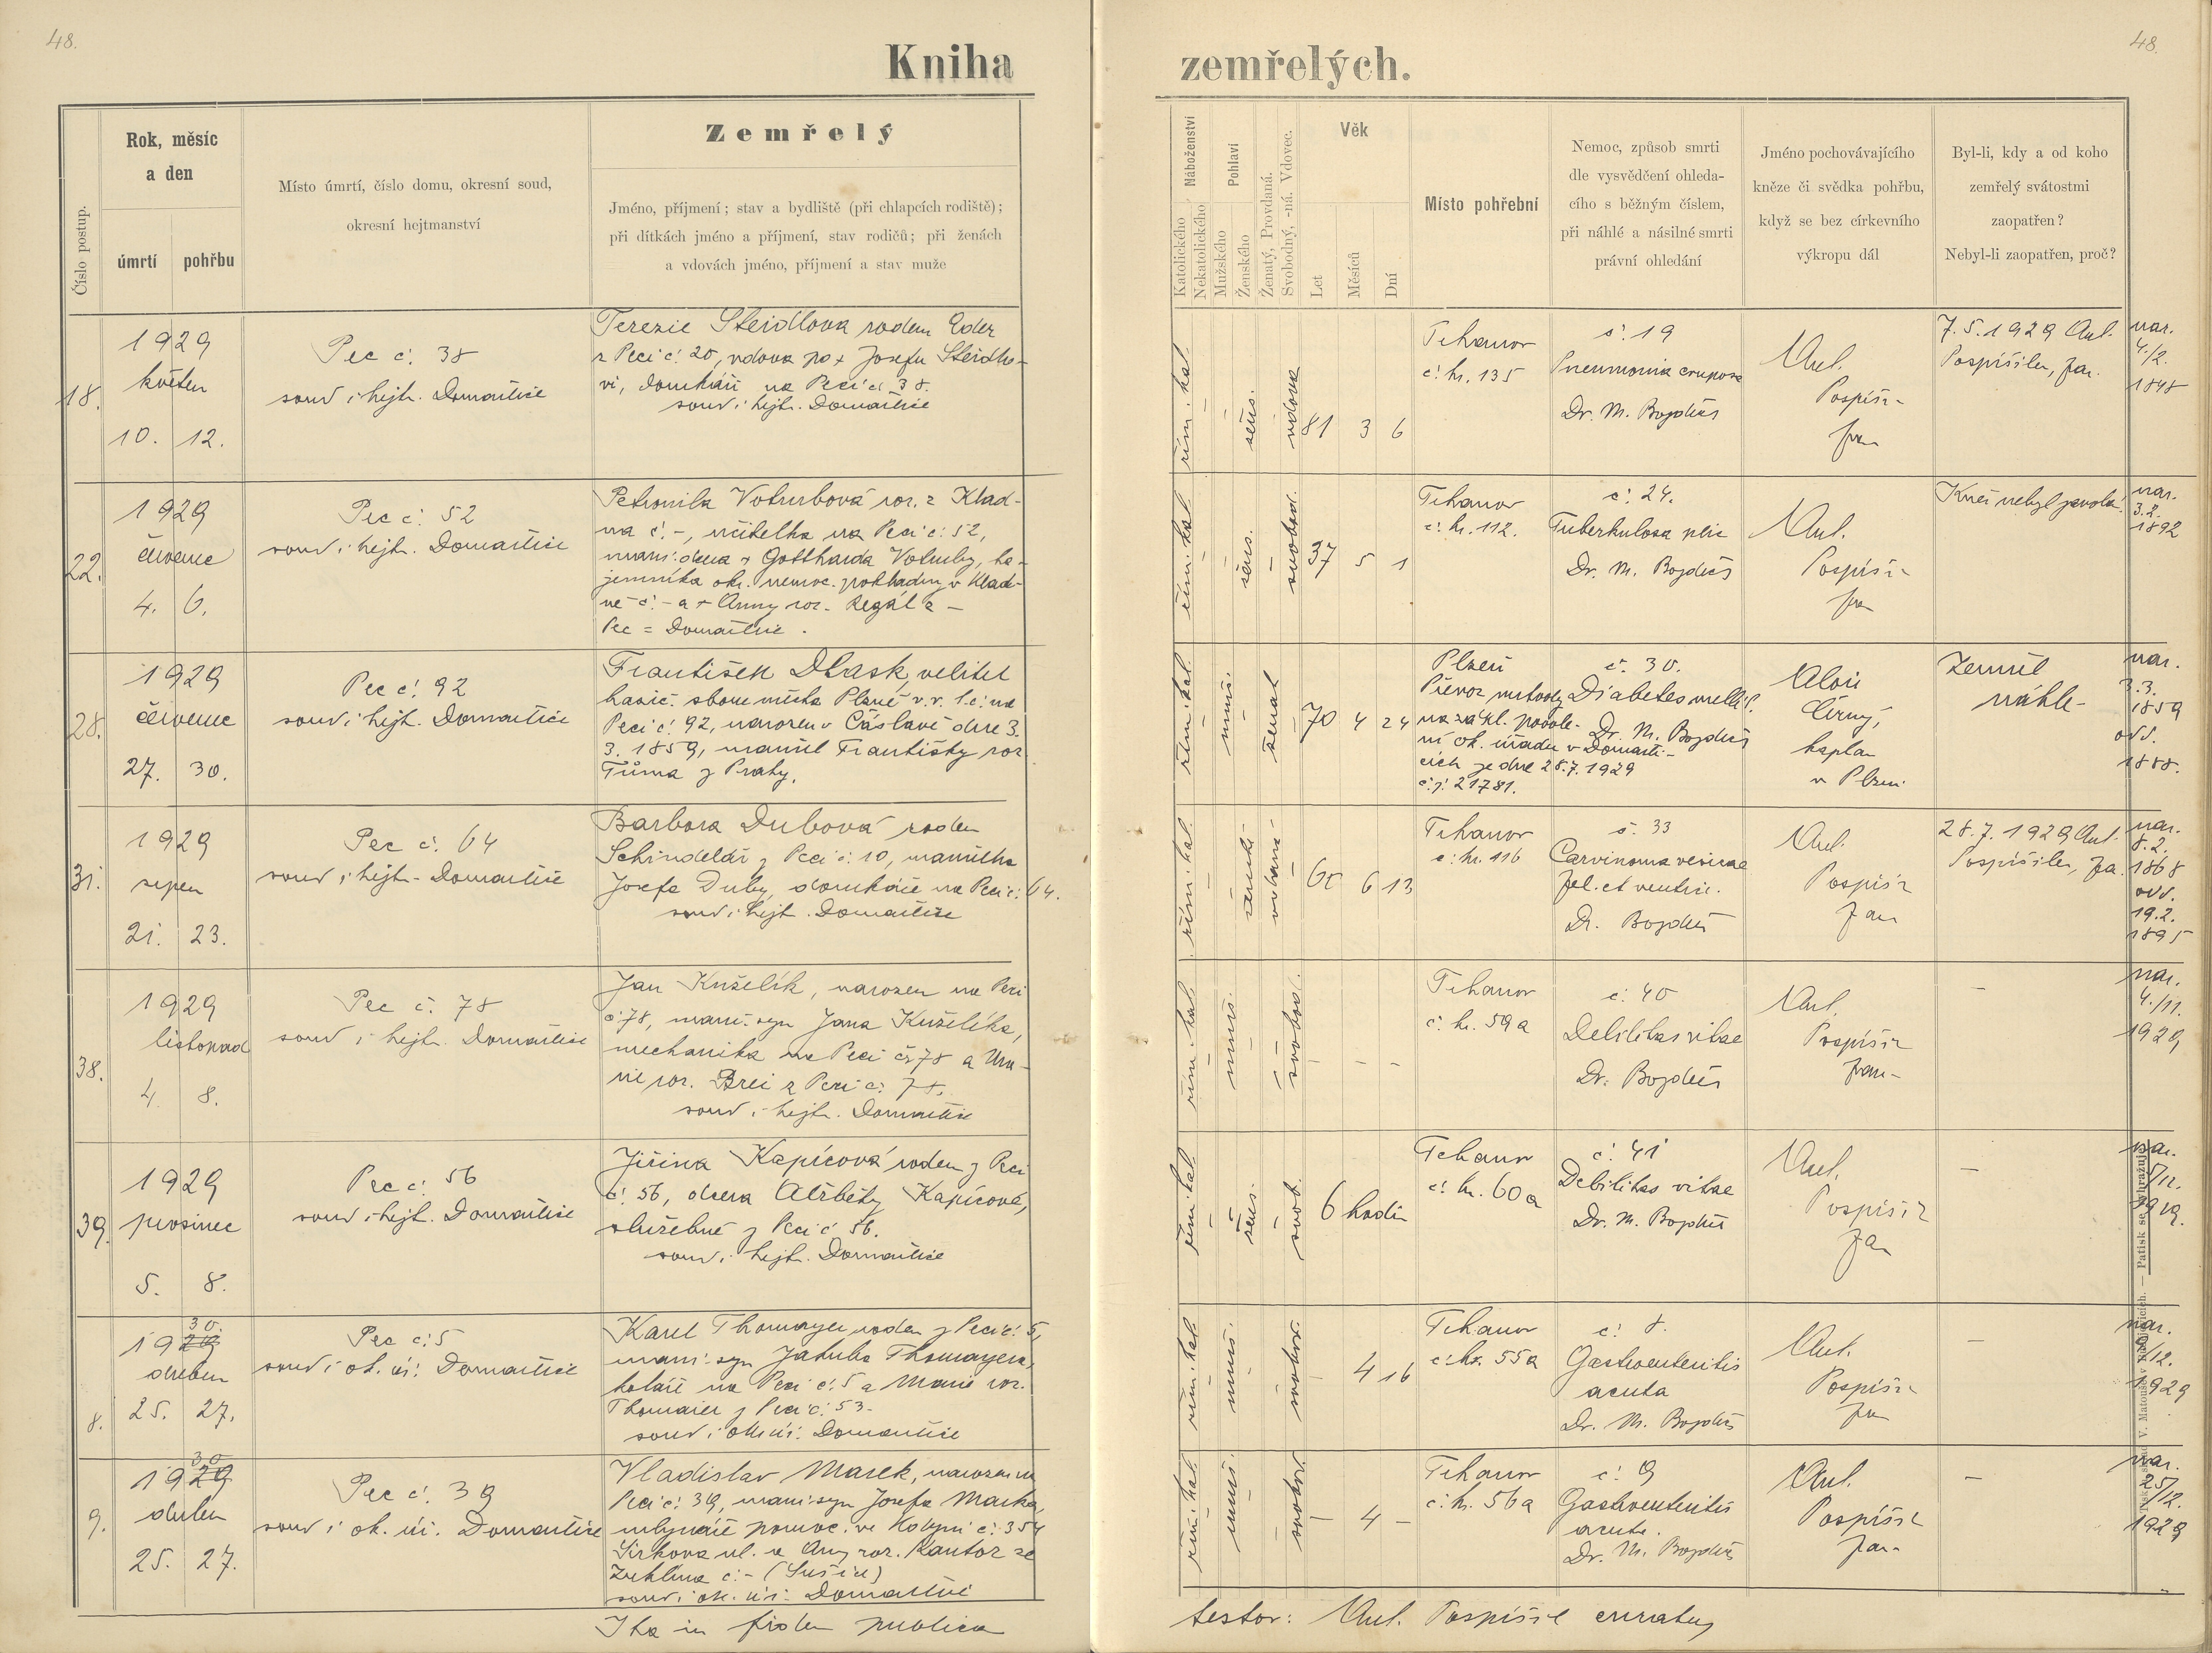 48.
48.
Kniha zemřelých.
Číslo postup.
Rok, měsíc
a den
úmrtí
pohřbu
Místo úmrtí, číslo domu, okresní soud,
okresní hejtmanství
Zemřelý
Jméno, příjmení; stav a bydliště (při chlapcích rodiště);
při dítkách jméno a příjmení, stav rodičů; při ženách
a vdovách jméno, příjmení a stav muže
Náboženství
Katolického
Nekatolického
Pohlaví
Mužského
Ženského
Ženatý, Provdaná.
Svobodný, -ná. Vdovec.
Věk
Let
Měsíců
Dní
Místo pohřební
Nemoc, způsob smrti
dle vysvědčení ohleda-
cího s běžným číslem,
při náhlé a násilné smrti
právní ohledání
Jméno pochovávajícího
kněze či svědka pohřbu,
když se bez církevního
výkropu dál
Byl-li, kdy a od koho
zemřelý svátostmi
zaopatřen?
Nebyl-li zaopatřen, proč?
18.
1929
květen
10. 12.
Pec č. 38
soud i hejt. Domažlice
Terezie Steidlova rodem Eder
z Peci č. 20, vdova po + Josefu Steidlo-
vi, domkáři na Peci č. 38.
soud i hejt. Domažlice
řím. kat.
žens.
vdova
81 3 6
Tihanov
č. hr. 135
č. 19
Pneumonia cruposa
Dr. M. Bozděch
Ant.
Pospíšil
far
7. 5. 1929 Ant.
Pospíšilem, far.
nar.
4./2.
1848
22.
1929
červenec
4. 6.
Pec č. 52
soud i hejt. Domažlice
Petronila Votrubová roz. z Klad-
na č. -, učitelka na Peci č. 52,
manž. dcera + Gottharda Votruby, ta-
jemníka okr. nemoc. pokladny v Klad-
ně č. - a + Anny roz. Regál z -
Pec = Domažlice.
řím. kat.
žens.
svobod.
37 5 1
Tihanov
č. hr. 112.
č. 24.
Tuberkulosa plic
Dr. M. Bozděch
Ant.
Pospíšil
far
Kněz nebyl zavolán.
nar.
3. 2.
1892
28.
1929
červenec
27. 30.
Pec č. 92
soud i hejt. Domažlice
František Dlask, velitel
hasič. sboru města Plzně v. v. t. č. na
Peci č. 92, narozen v Čáslavě dne 3.
3. 1859, manžel Františky roz.
Tůma z Prahy.
řím. kat.
muž.
ženat
70 4 24
Plzeň
Převoz mrtvoly
na zákl. povole-
ní ok. úřadu v Domažli-
cích ze dne 28. 7. 1929
č. j. 21781.
č. 30.
Diabetes mellit.
Dr. M. Bozděch
Alois
Černý,
kaplan
v Plzni
Zemřel
náhle-
nar.
3. 3.
1859
odd.
1888.
31.
1929
srpen
21. 23.
Pec č. 64
soud i hejt. Domažlice
Barbora Dubová rodem
Schindelář z Peci č. 10, manželka
Josefa Duby, domkáře na Peci č. 64.
soud i hejt. Domažlice
řím. kat.
ženské
6 13
Tihanov
č. hr. 116
č. 33
Carvinoma vesicae
fel. et ventric.
Dr. Bozděch
Ant.
Pospíšil
far
28. 7. 1929 Ant.
Pospíšilem, far.
nar.
8. 2.
1868
odd.
19. 2.
1895
38.
1929
listopad
4. 8.
Pec č. 78
soud i hejt. Domažlice
Jan Kuželík, narozen na Peci
č. 78, manž. syn Jana Kuželíka,
mechanika na Peci čs 78 a Ma-
rie roz. Brei z Peci č. 78.
soud i hejt. Domažlice
řím. kat.
muž.
svobod.
- - -
Tihanov
č. hr. 59a
č. 40
Debilitas vitae
Dr. Bozděch
Ant.
Pospíšil
far
-
nar.
4./11.
1929
39.
1929
prosinec
5. 8.
Pec č. 56
soud i hejt. Domažlice
Jiřina Kapicová rodem z Peci
č. 56, dcera Alžběty Kapicové,
služebné z Peci č 56.
soud i hejt. Domažlice
řím. kat.
žens.
svob.
6 hodin
Tihanov
č. hr. 60a
č. 41
Debilitas vitae
Dr. M. Bozděch
Ant.
Pospíšil
far
-
nar.
5/12.
1929.
8.
1929 30.
duben
25. 27.
Pec č. 5
soud i ok. úř. Domažlice
Karel Thomayer rodem z Peci č. 5,
manž. syn Jakuba Thomayera,
koláře na Peci č. 5 a Marie roz.
Thomaier z Peci č. 53.
soud i ok. úř. Domažlice
řím. kat.
muž.
svobod.
- 4 16
Tihanov
č. hr. 55a
č. 8.
Gastroenteritis
acuta
Dr. M. Bozděch
Ant.
Pospíšil
far
-
nar.
1929
9.
1929 30
duben
25. 27.
Pec č. 39
soud i ok. úř. Domažlice
Vladislav Marek, narozen na
Peci č. 39, manž. syn Josefa Marka,
mlynáře pomoc. ve Kdyni č. 354
roz. Kantor ze
Zuklína č. - (Sušice)
soud i ok. úř. Domažlice
řím. kat.
muž.
svobod.
- 4 -
Tihanov
č. hr. 56a
č. 9
Gastroenteritis
acuta.
Dr. M. Bozděch
Ant.
Pospíšil
far
-
nar.
25/12.
1929
Patisk se vyhražuje.
Ita in fidem publica
testor: Ant. Pospíšil curatus